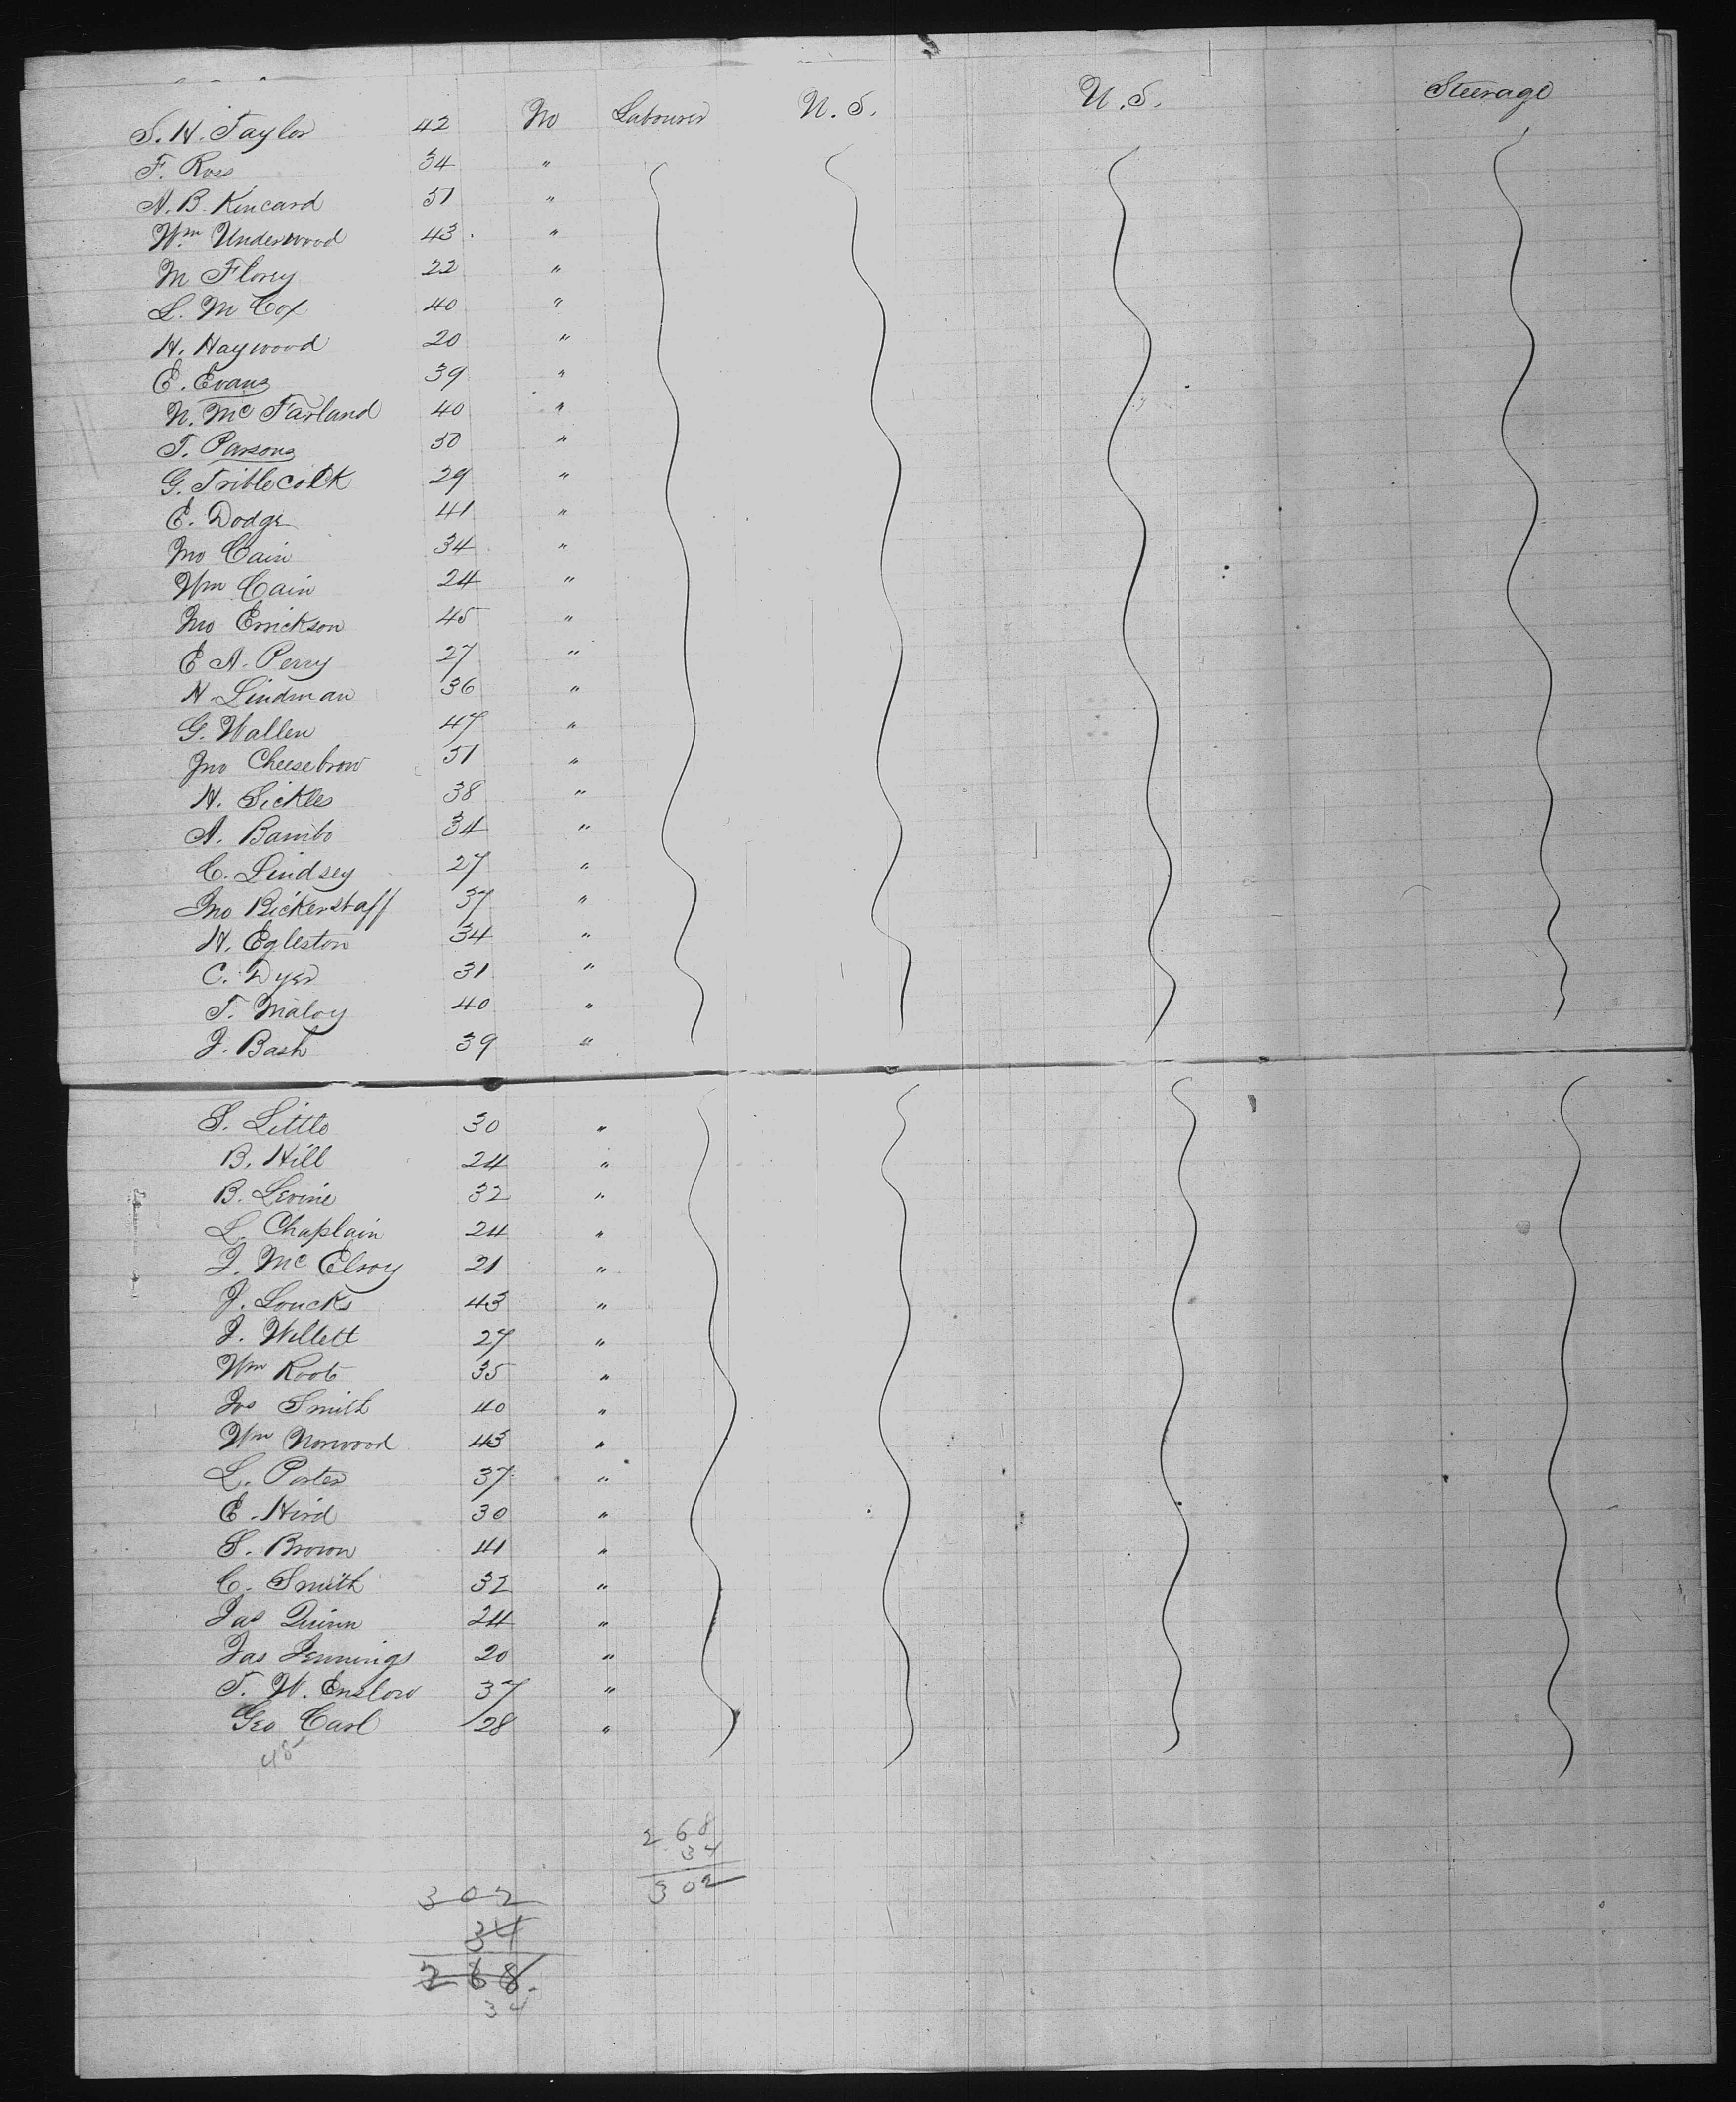 S. H. Taylor 42 M Labourer U.S. U.S. Steerage
F. Ross 34 "
A. B. Kincard 51 "
Wm Underwood 43 "
M Flory 22 "
L. M Cox 40 "
H. Haywood 20 "
E. Evans 39 "
N. Mc Farland 40 "
T. Parsons 50 "
G. Triblecock 29 "
E. Dodge 41 "
Jno Cain 34 "
Wm Cain 24 "
Jno Errickson 45 "
E A. Perry 27 "
H. Lindman 36 "
G. Wallen 47 "
Jno Cheesebrow 51 "
H. Sickles 38 "
A. Bambo 34 "
C. Lindsey 27 "
Jno Bickerstaff 37 "
H. Egleston 34 "
C. Dyer 31 "
T. Maloy 40 "
J. Bash 39 "
S. Little 30 "
B. Hill 24 "
B. Levine 32 "
L. Chaplain 24 "
J. Mc Elroy 21 "
J. Loucks 43 "
J. Willett 27 "
Wm Root 35 "
Jos Smith 40 "
Wm Norwood 43 "
L. Porter 37 "
E. Hird 30 "
S. Brown 41 "
C. Smith 32 "
Jas Quinn 24 "
Jas Jennings 20 "
T. W. Enslow 37 "
Geo Carl 28 "
45
268
34
302
302
34
268
34